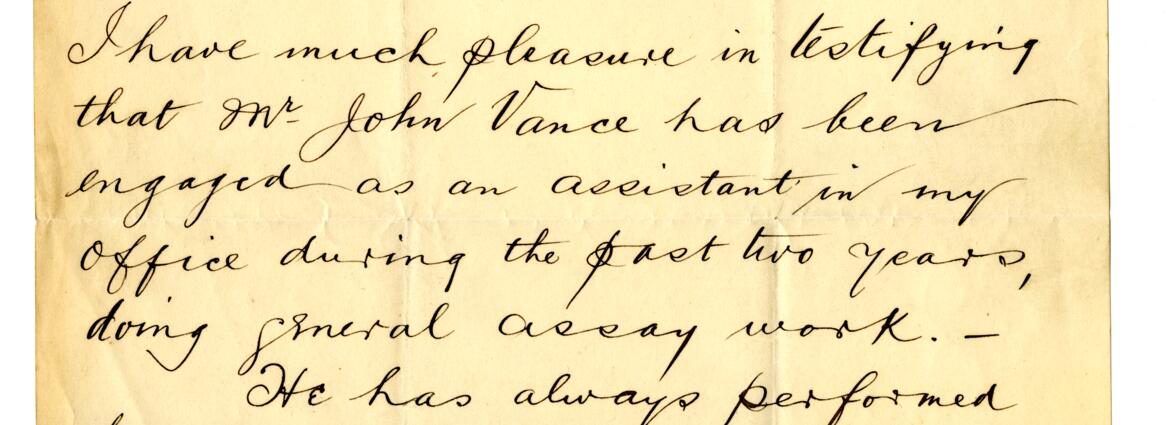 I have much pleasure in testifying
that Mr. John Vance has been
engaged as an assistant in my
office during the past two years,
doing general assay work. –
He has always performed